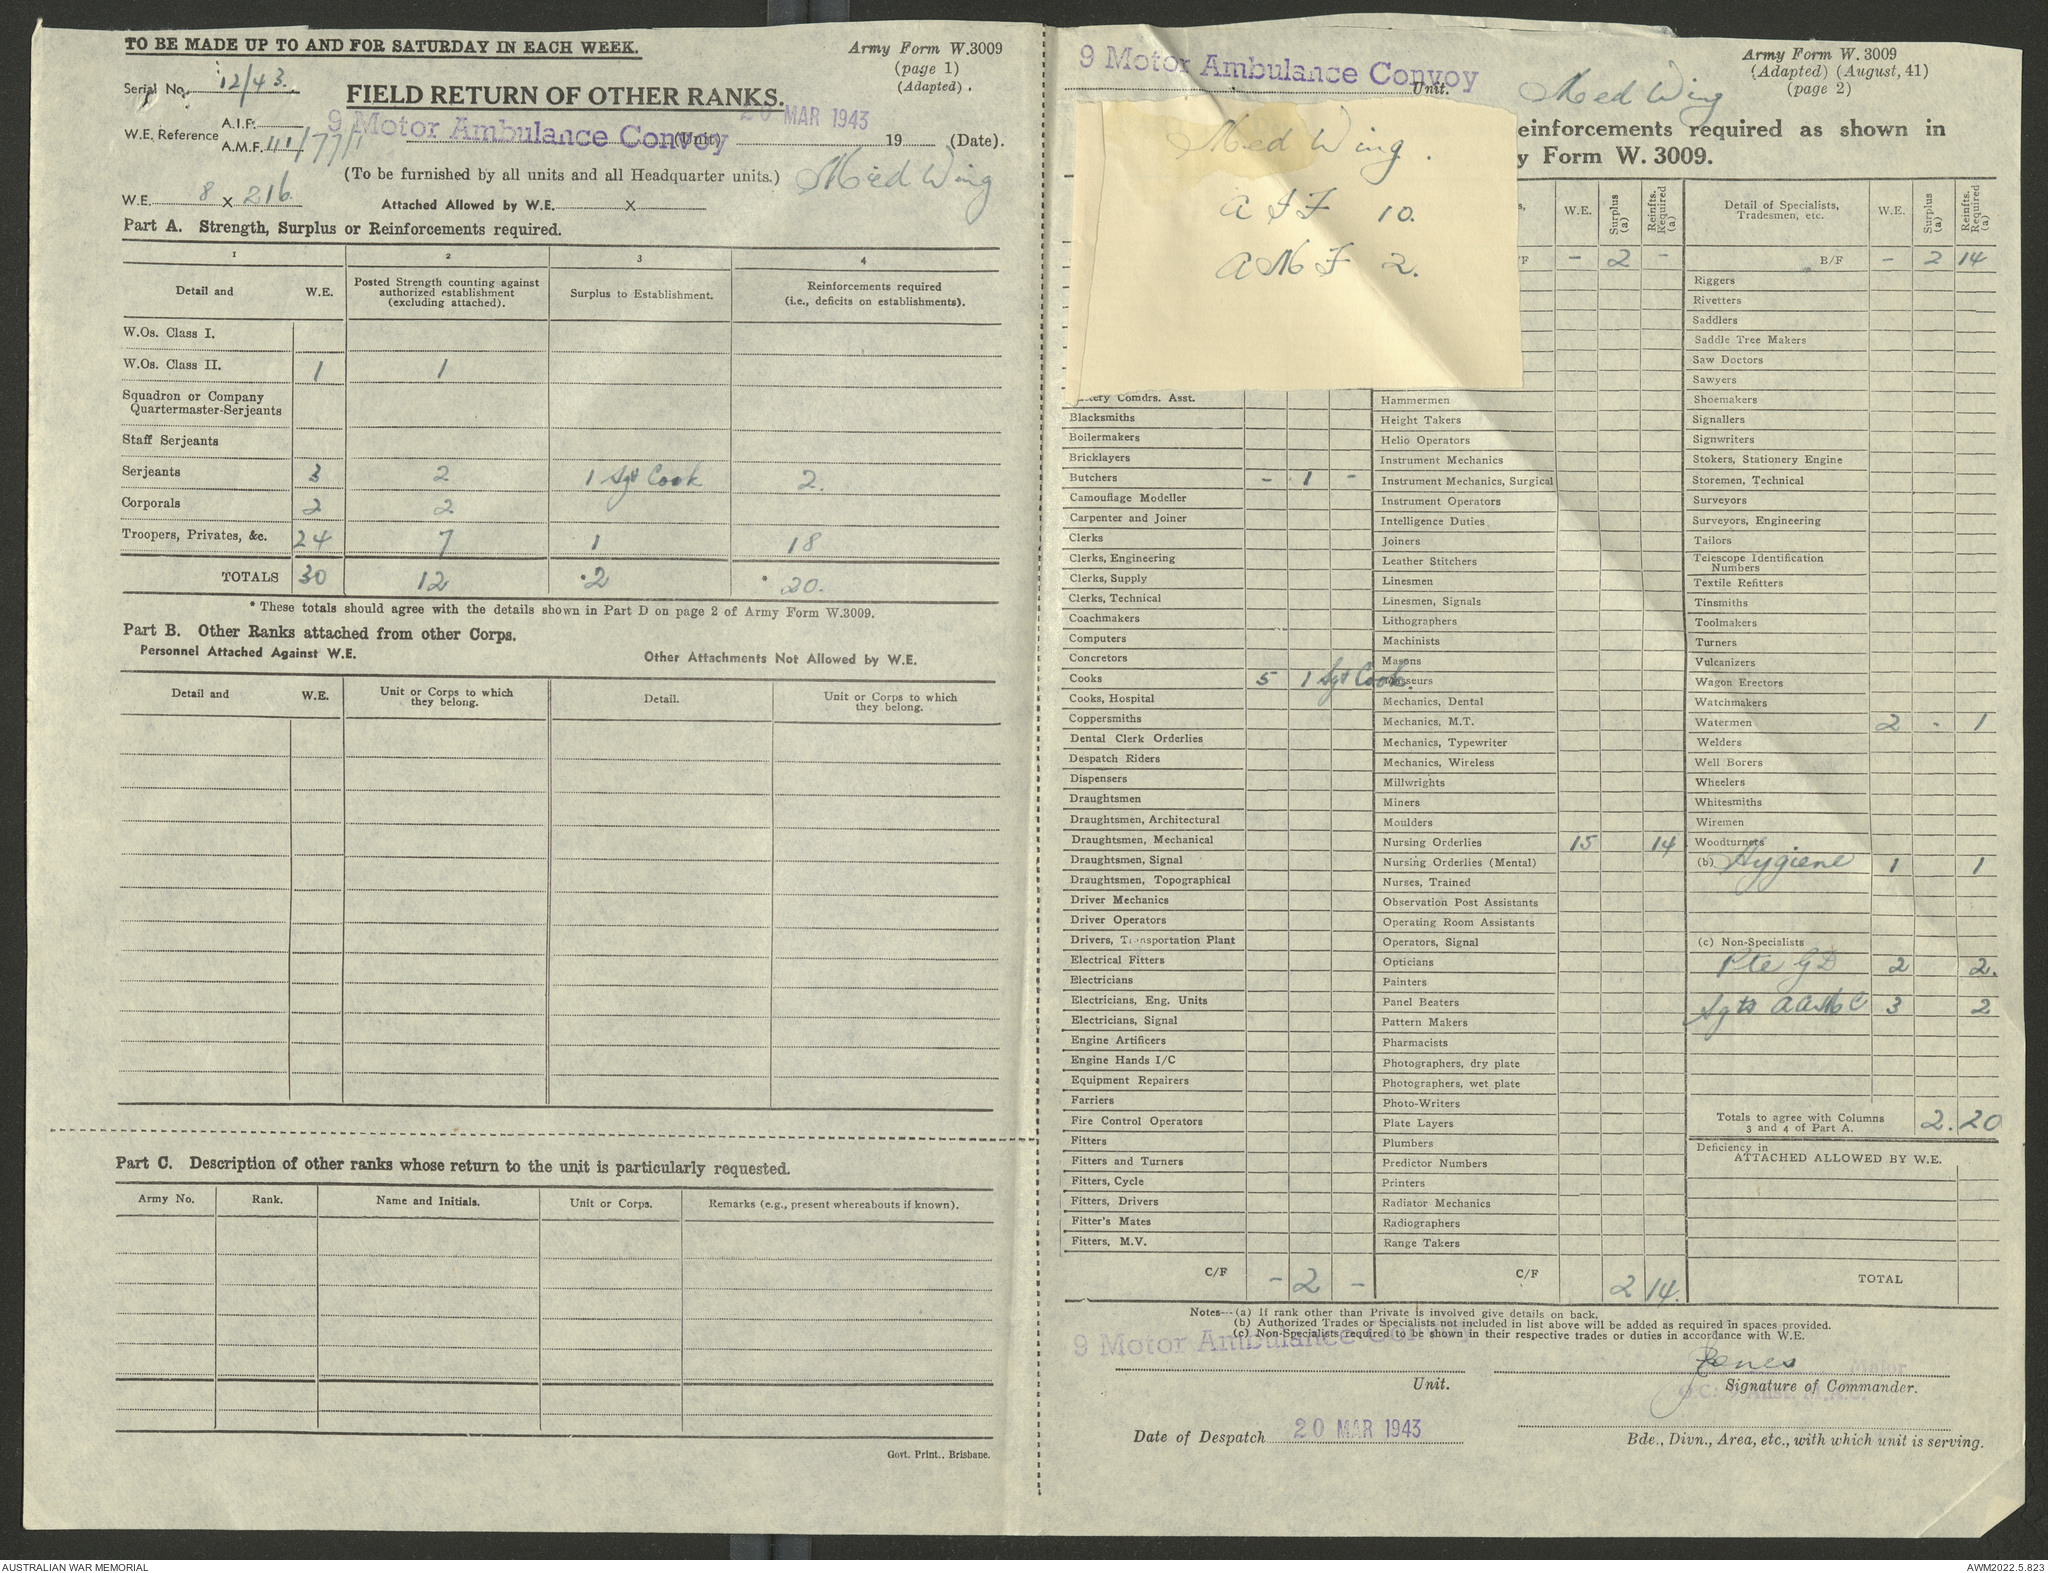 TO BE MADE UP TO AND FOR SATURDAY IN EACH WEEK.
Army Form W.3009
(page 1)
(Adapted).
Serial No. 12/43.
FIELD RETURN OF OTHER RANKS.
20 MAR 1943
W.E. Reference
A.I.F.
A.M.F. III/77/1
9 Motor Ambulance Convoy (Unit) 19 (Date).
(To be furnished by all units and all Headquarter units.) Med Wing
W.E. 8 x 216
Attached Allowed by W.E. x
Part A. Strength, Surplus or Reinforcements required.
1 2 3 4
Detail and W.E. Posted Strength counting against authorized establishment (excluding attached). Surplus to Establishment. Reinforcements required (i.e., deficits on establishments).
W.Os. Class I.
W.Os. Class II. 1 1
Squadron or Company
Quartermaster-Serjeants
Staff Serjeants
Serjeants 3 2 1 Sgt Cook 2.
Corporals 2 2
Troopers, Privates, &c. 24 7 1 18
TOTALS 30 12 *2 * 20.
* These totals should agree with the details shown in Part D on page 2 of Army Form W.3009.
Part B. Other Ranks attached from other Corps.
Personnel Attached Against W.E. Other Attachments Not Allowed by W.E.
Detail and W.E. Unit or Corps to which they belong. Detail. Unit or Corps to which they belong.
Part C. Description of other ranks whose return to the unit is particularly requested.
Army No. Rank. Name and Initials. Unit or Corps. Remarks (e.g., present whereabouts if known).
Govt. Print., Brisbane.
9 Motor Ambulance Convoy Unit.
Med Wing
Army Form W. 3009
(Adapted) (August, 41)
(page 2)
einforcements required as shown in
y Form W. 3009.
Med Wing.
A I F 10.
A M F 2.
W.E. Surplus (a) Reinfts. Required (a)
Detail of Specialists, Tradesmen, etc. W.E. Surplus (a) Reinfts. Required (a)
/F - 2 -
B/F - 2 14
Riggers
Rivetters
Saddlers
Saddle Tree Makers
Saw Doctors
Sawyers
Shoemakers
Signallers
Signwriters
Stokers, Stationery Engine
Storemen, Technical
Surveyors
Surveyors, Engineering
Tailors
Telescope Identification
Numbers
Textile Refitters
Tinsmiths
Toolmakers
Turners
Vulcanizers
Wagon Erectors
Watchmakers
Watermen 2 - 1
Welders
Well Borers
Wheelers
Whitesmiths
Wiremen
Woodturners
(b) Hygiene 1 1
(c) Non-Specialists
Pte GD 2 2.
Sgts AAMC 3 2
Totals to agree with Columns
3 and 4 of Part A. 2. 20
Deficiency in
ATTACHED ALLOWED BY W.E.
TOTAL
tery Comdrs. Asst.
Blacksmiths
Boilermakers
Bricklayers
Butchers - 1 -
Camouflage Modeller
Carpenter and Joiner
Clerks
Clerks, Engineering
Clerks, Supply
Clerks, Technical
Coachmakers
Computers
Concretors
Cooks 5 1 Sgt Cook.
Cooks, Hospital
Coppersmiths
Dental Clerk Orderlies
Despatch Riders
Dispensers
Draughtsmen
Draughtsmen, Architectural
Draughtsmen, Mechanical
Draughtsmen, Signal
Draughtsmen, Topographical
Driver Mechanics
Driver Operators
Drivers, Transportation Plant
Electrical Fitters
Electricians
Electricians, Eng. Units
Electricians, Signal
Engine Artificers
Engine Hands I/C
Equipment Repairers
Farriers
Fire Control Operators
Fitters
Fitters and Turners
Fitters, Cycle
Fitters, Drivers
Fitter's Mates
Fitters, M.V.
C/F - 2 -
Hammermen
Height Takers
Helio Operators
Instrument Mechanics
Instrument Mechanics, Surgical
Instrument Operators
Intelligence Duties
Joiners
Leather Stitchers
Linesmen
Linesmen, Signals
Lithographers
Machinists
Masons
Masseurs
Mechanics, Dental
Mechanics, M.T.
Mechanics, Typewriter
Mechanics, Wireless
Millwrights
Miners
Moulders
Nursing Orderlies 15 14
Nursing Orderlies (Mental)
Nurses, Trained
Observation Post Assistants
Operating Room Assistants
Operators, Signal
Opticians
Painters
Panel Beaters
Pattern Makers
Pharmacists
Photographers, dry plate
Photographers, wet plate
Photo-Writers
Plate Layers
Plumbers
Predictor Numbers
Printers
Radiator Mechanics
Radiographers
Range Takers
C/F 2 14.
Notes—(a) If rank other than Private is involved give details on back.
(b) Authorized Trades or Specialists not included in list above will be added as required in spaces provided.
(c) Non-Specialists required to be shown in their respective trades or duties in accordance with W.E.
9 Motor Ambulance Convoy
Unit.
Jones Major
Signature of Commander.
Date of Despatch 20 MAR 1943
Bde., Divn., Area, etc., with which unit is serving.
AUSTRALIAN WAR MEMORIAL
AWM2022.5.823